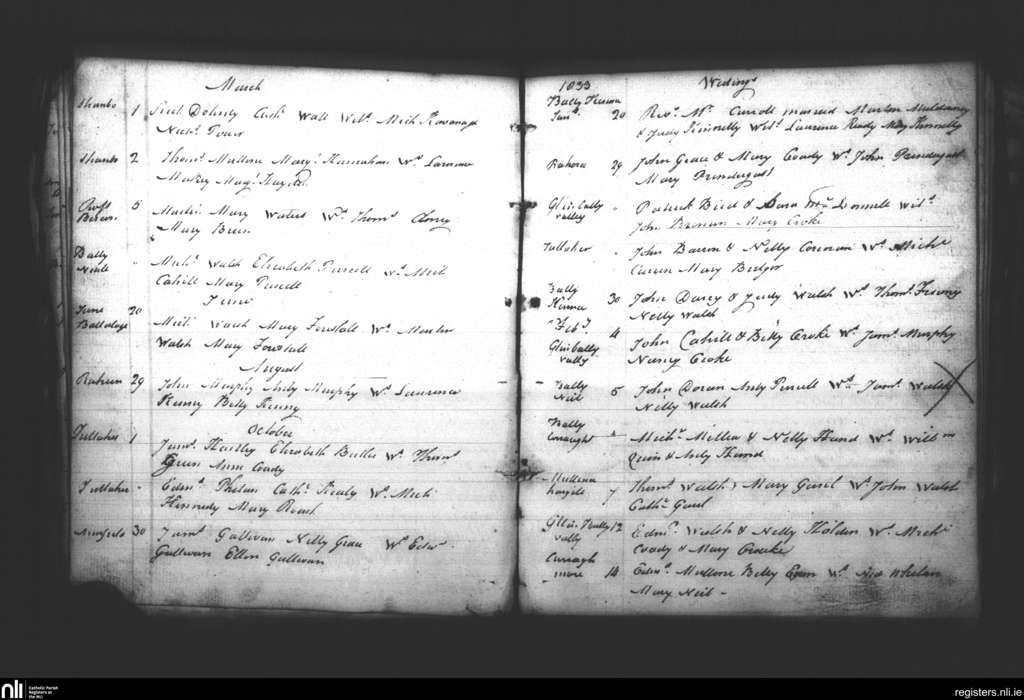 March
Shanbo 1 Rich. Doherty Cath. Wall Wits. Mich. Kavanagh
Nich. Power
Shanbo 2 Thoms. Mullona Mary Hanrahan Ws.
Mary
5 Martin Mary Waters Ws. Thoms.
Mary Breen
Bally Neill " Mich. Walsh Elizabeth Purcell Ws. Mich
Cahill Mary Purcell
June
June 20
Mich. Mary Fowstall Ws. Martin
Walsh Mary Fowstall
August
Raheen 29 John Murphy Andy Murphy Ws. Laurence
Kenny Betty Kenny
October
Tullaher 1 Jams. Hartley Elizabeth Butler Ws. Thoms.
Green Ann Coady
Tullaher " Edmd. Phelan Cath. Healy Ws. Mich
Kennedy Mary Roach
30 Jams. Gallivan Nelly Grau Ws. Edw.
Gallivan Ellen Gallivan
1833 Wedings
Bally Kenna
Jan. 20 Revd. Mr. Carroll married Martin Muldowny
& Judy Kennelly Wits. Laurence Ready May Kennelly
Rahora 29 John Grau & Mary Coady Ws. John Prendergast
Mary Prendergast
Glin bally
vally " Patrick Bird & Sara Mc Donnell Wits.
John Brenan Mary Croke
Tullaher " John Barron & Nelly Corenan Ws. Miche
Mary Bolger
Bally
Kenna 30 John Darcy & Judy Walsh Ws. Thoms.
Nelly Walsh
Feb.
Glinbally
vally 4 John Cahill & Betty Croke Ws. Jams. Murphy
Nancy Croke
Bally
Neil 5 John Doran Andy Purcell Ws. Jams. Walsh
Nelly Walsh
Bally
Conaught " Mich. Millea & Nelly Hand Ws. Willm
Quin & Andy Hand
Mullena
7 Thoms. Walsh & Mary Gaul Ws. John Walsh
Cath. Gaul
Glin bally
vally 12 Edmd. Walsh & Nelly Holden Ws. Mich
Coady & Mary Croake
Curragh
more 14 Edmd. Mullone Betty Ws. Nics Whelan
Mary Neil -
nli Catholic Parish
Registers at
the NLI
registers.nli.ie